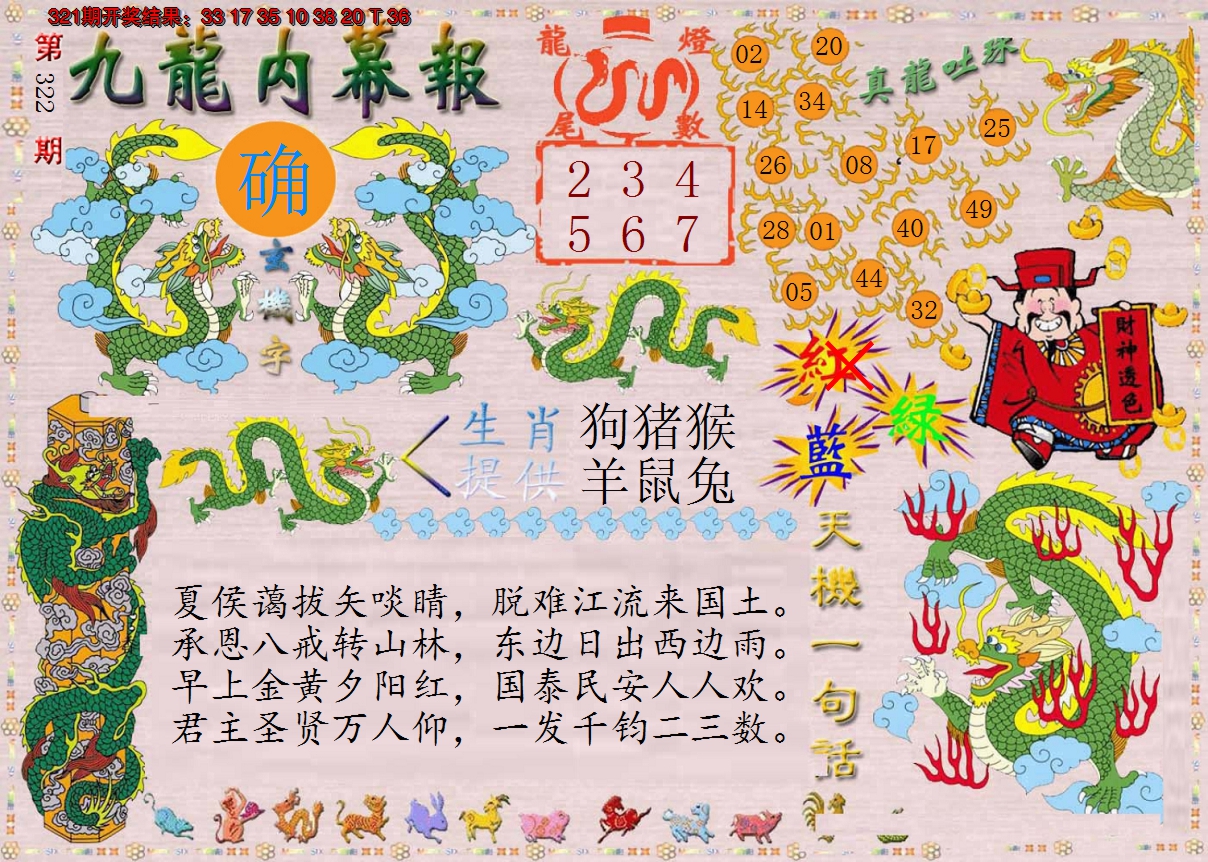 321期开奖结果：33 17 35 10 38 20 T 36
第322期
九龍内幕報
确
玄機字
龍燈
尾數
2 3 4
5 6 7
真龍吐珠
02 20
14 34
26 08 17 25
28 01 40 49
05 44 32
財神透色
紅
綠
藍
生肖 狗猪猴
提供 羊鼠兔
天機一句話
夏侯蔼拔矢啖睛，脱难江流来国土。
承恩八戒转山林，东边日出西边雨。
早上金黄夕阳红，国泰民安人人欢。
君主圣贤万人仰，一发千钧二三数。